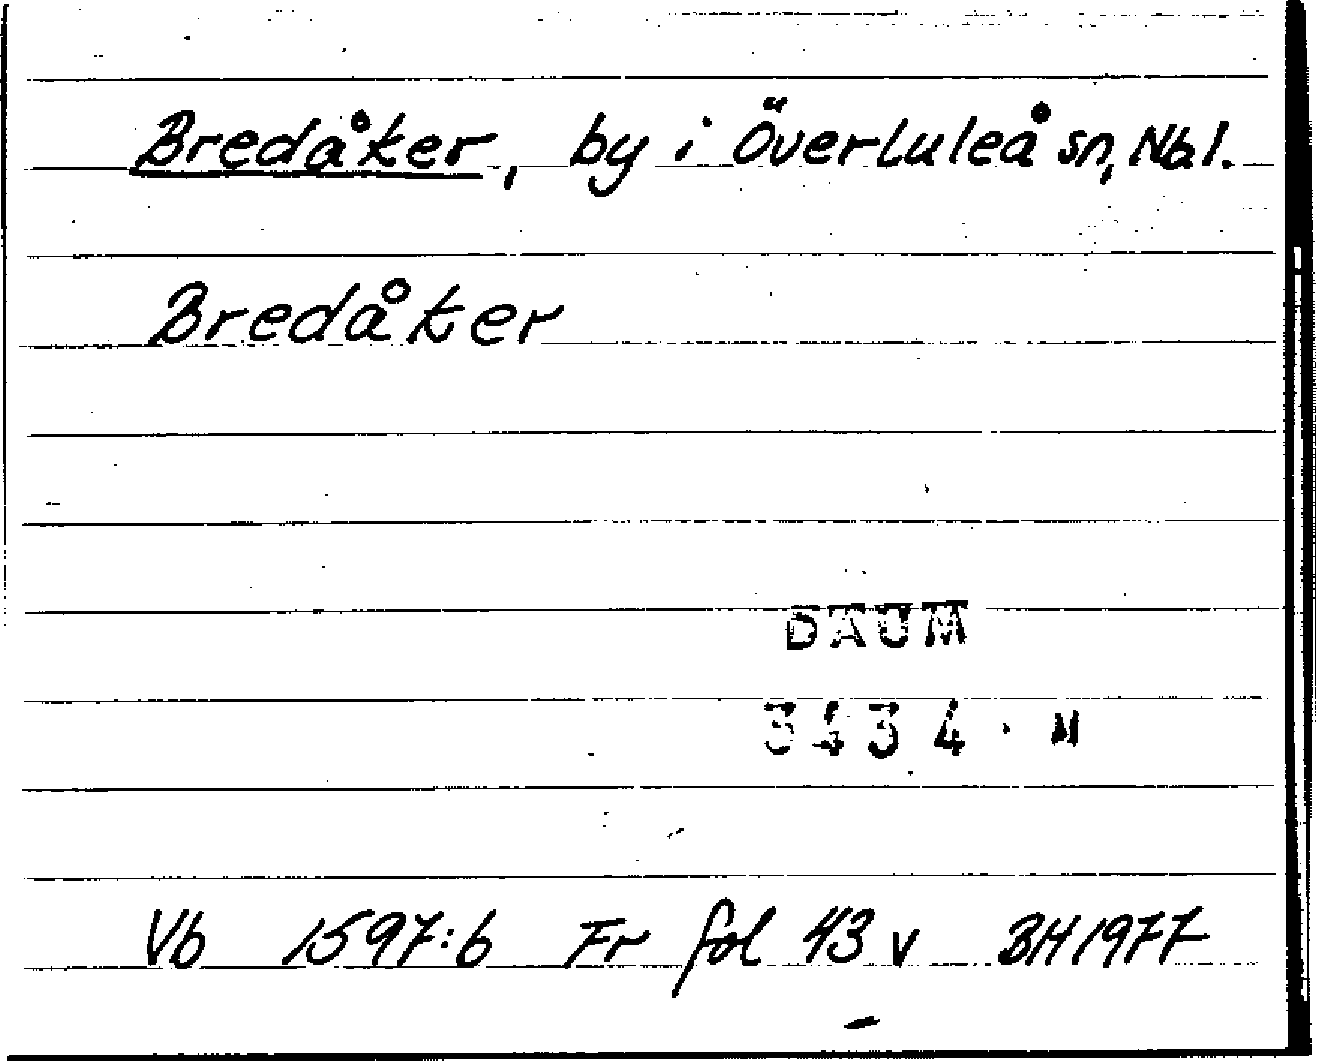 Bredåker, by i Överluleå sn, Nbl.
Bredåker
DAUM
3434 · M
Vb 1597:6 Fr fol 43 v BH 1977